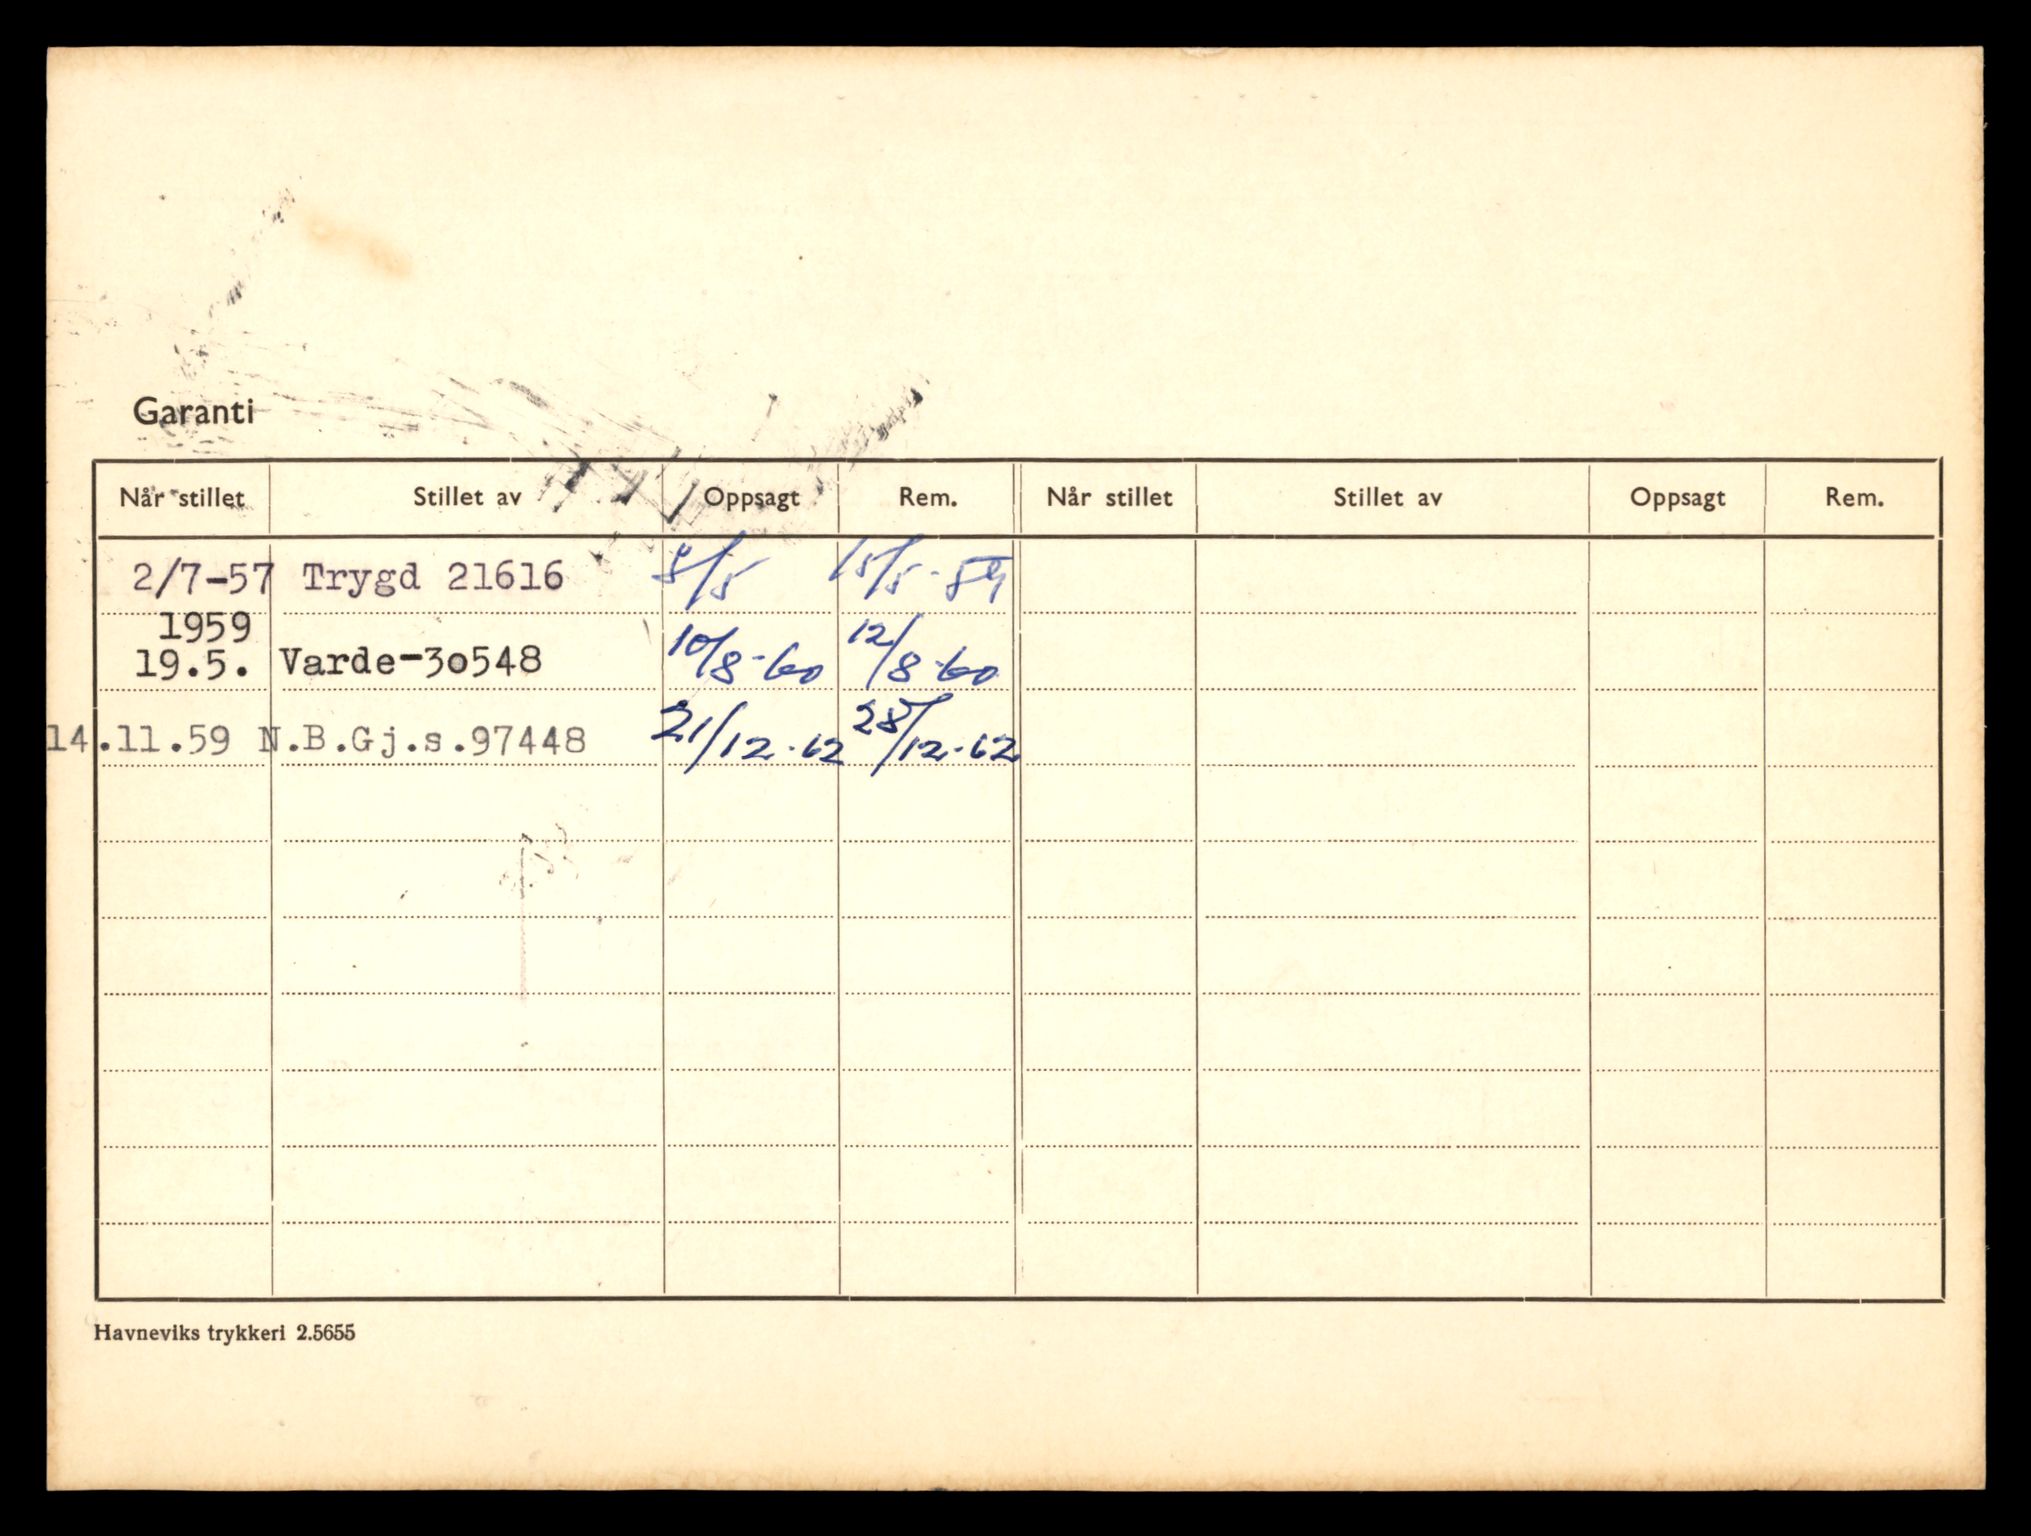 Garanti
Når stillet Stillet av Oppsagt Rem. Når stillet Stillet av Oppsagt Rem.
2/7-57 Trygd 21616 8/5 15/5-59
1959
19.5. Varde-30548 10/8-60 12/8-60
14.11.59 N.B.Gj.s.97448 21/12-62 28/12-62
Havneviks trykkeri 2.5655